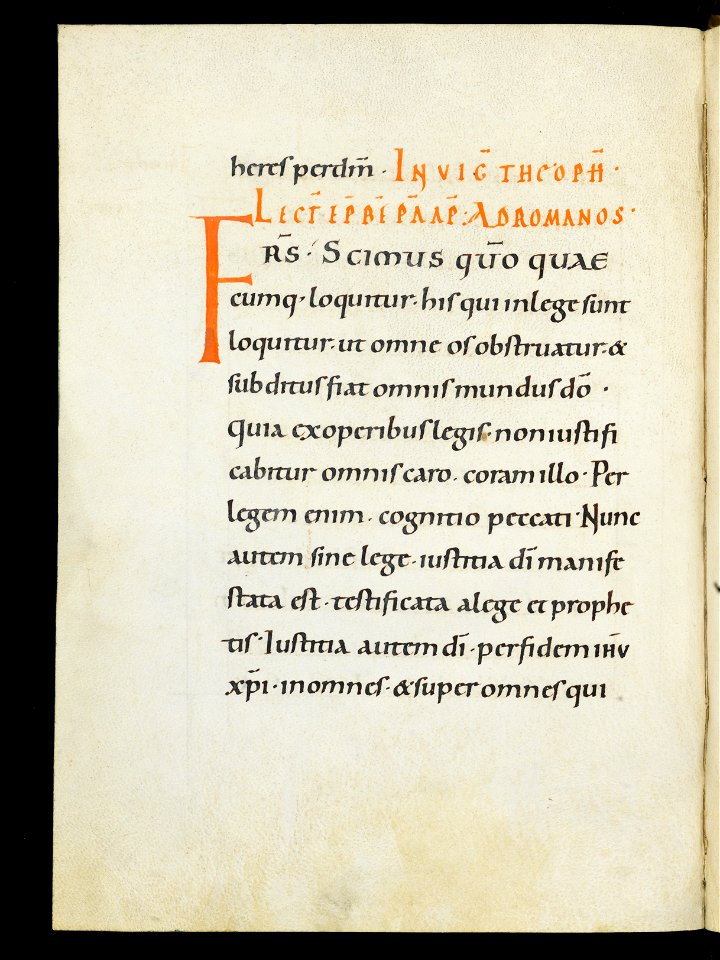 heres perdm̄ · IN VIG̅ THEOPH̅ ·
LECT̅ EP̅ BE̅ PA̅ AP̅: AD ROMANOS ·
FR̅S · Scimus qūo quae
cumq· loquitur · his qui inlege sunt
loquitur · ut omne os obstruatur · &
subditus fiat omnis mundus dō ·
quia exoperibus legis · non iustifi
cabitur omnis caro · coram illo · Per
legem enim · cognitio peccati · Nunc
autem sine lege · iustitia dī manife
stata est · testificata alege et prophe
tis · Iustitia autem dī · perfidem ihū
xp̄i · inomnes · & super omnes qui